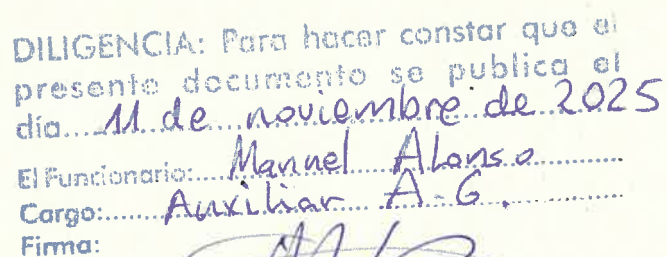 DILIGENCIA: Para hacer constar que el
presente documento se publica el
día.....11 de noviembre de 2025
El Funcionario:.....Manuel Alonso..........
Cargo:......Auxiliar A.G...............
Firma: